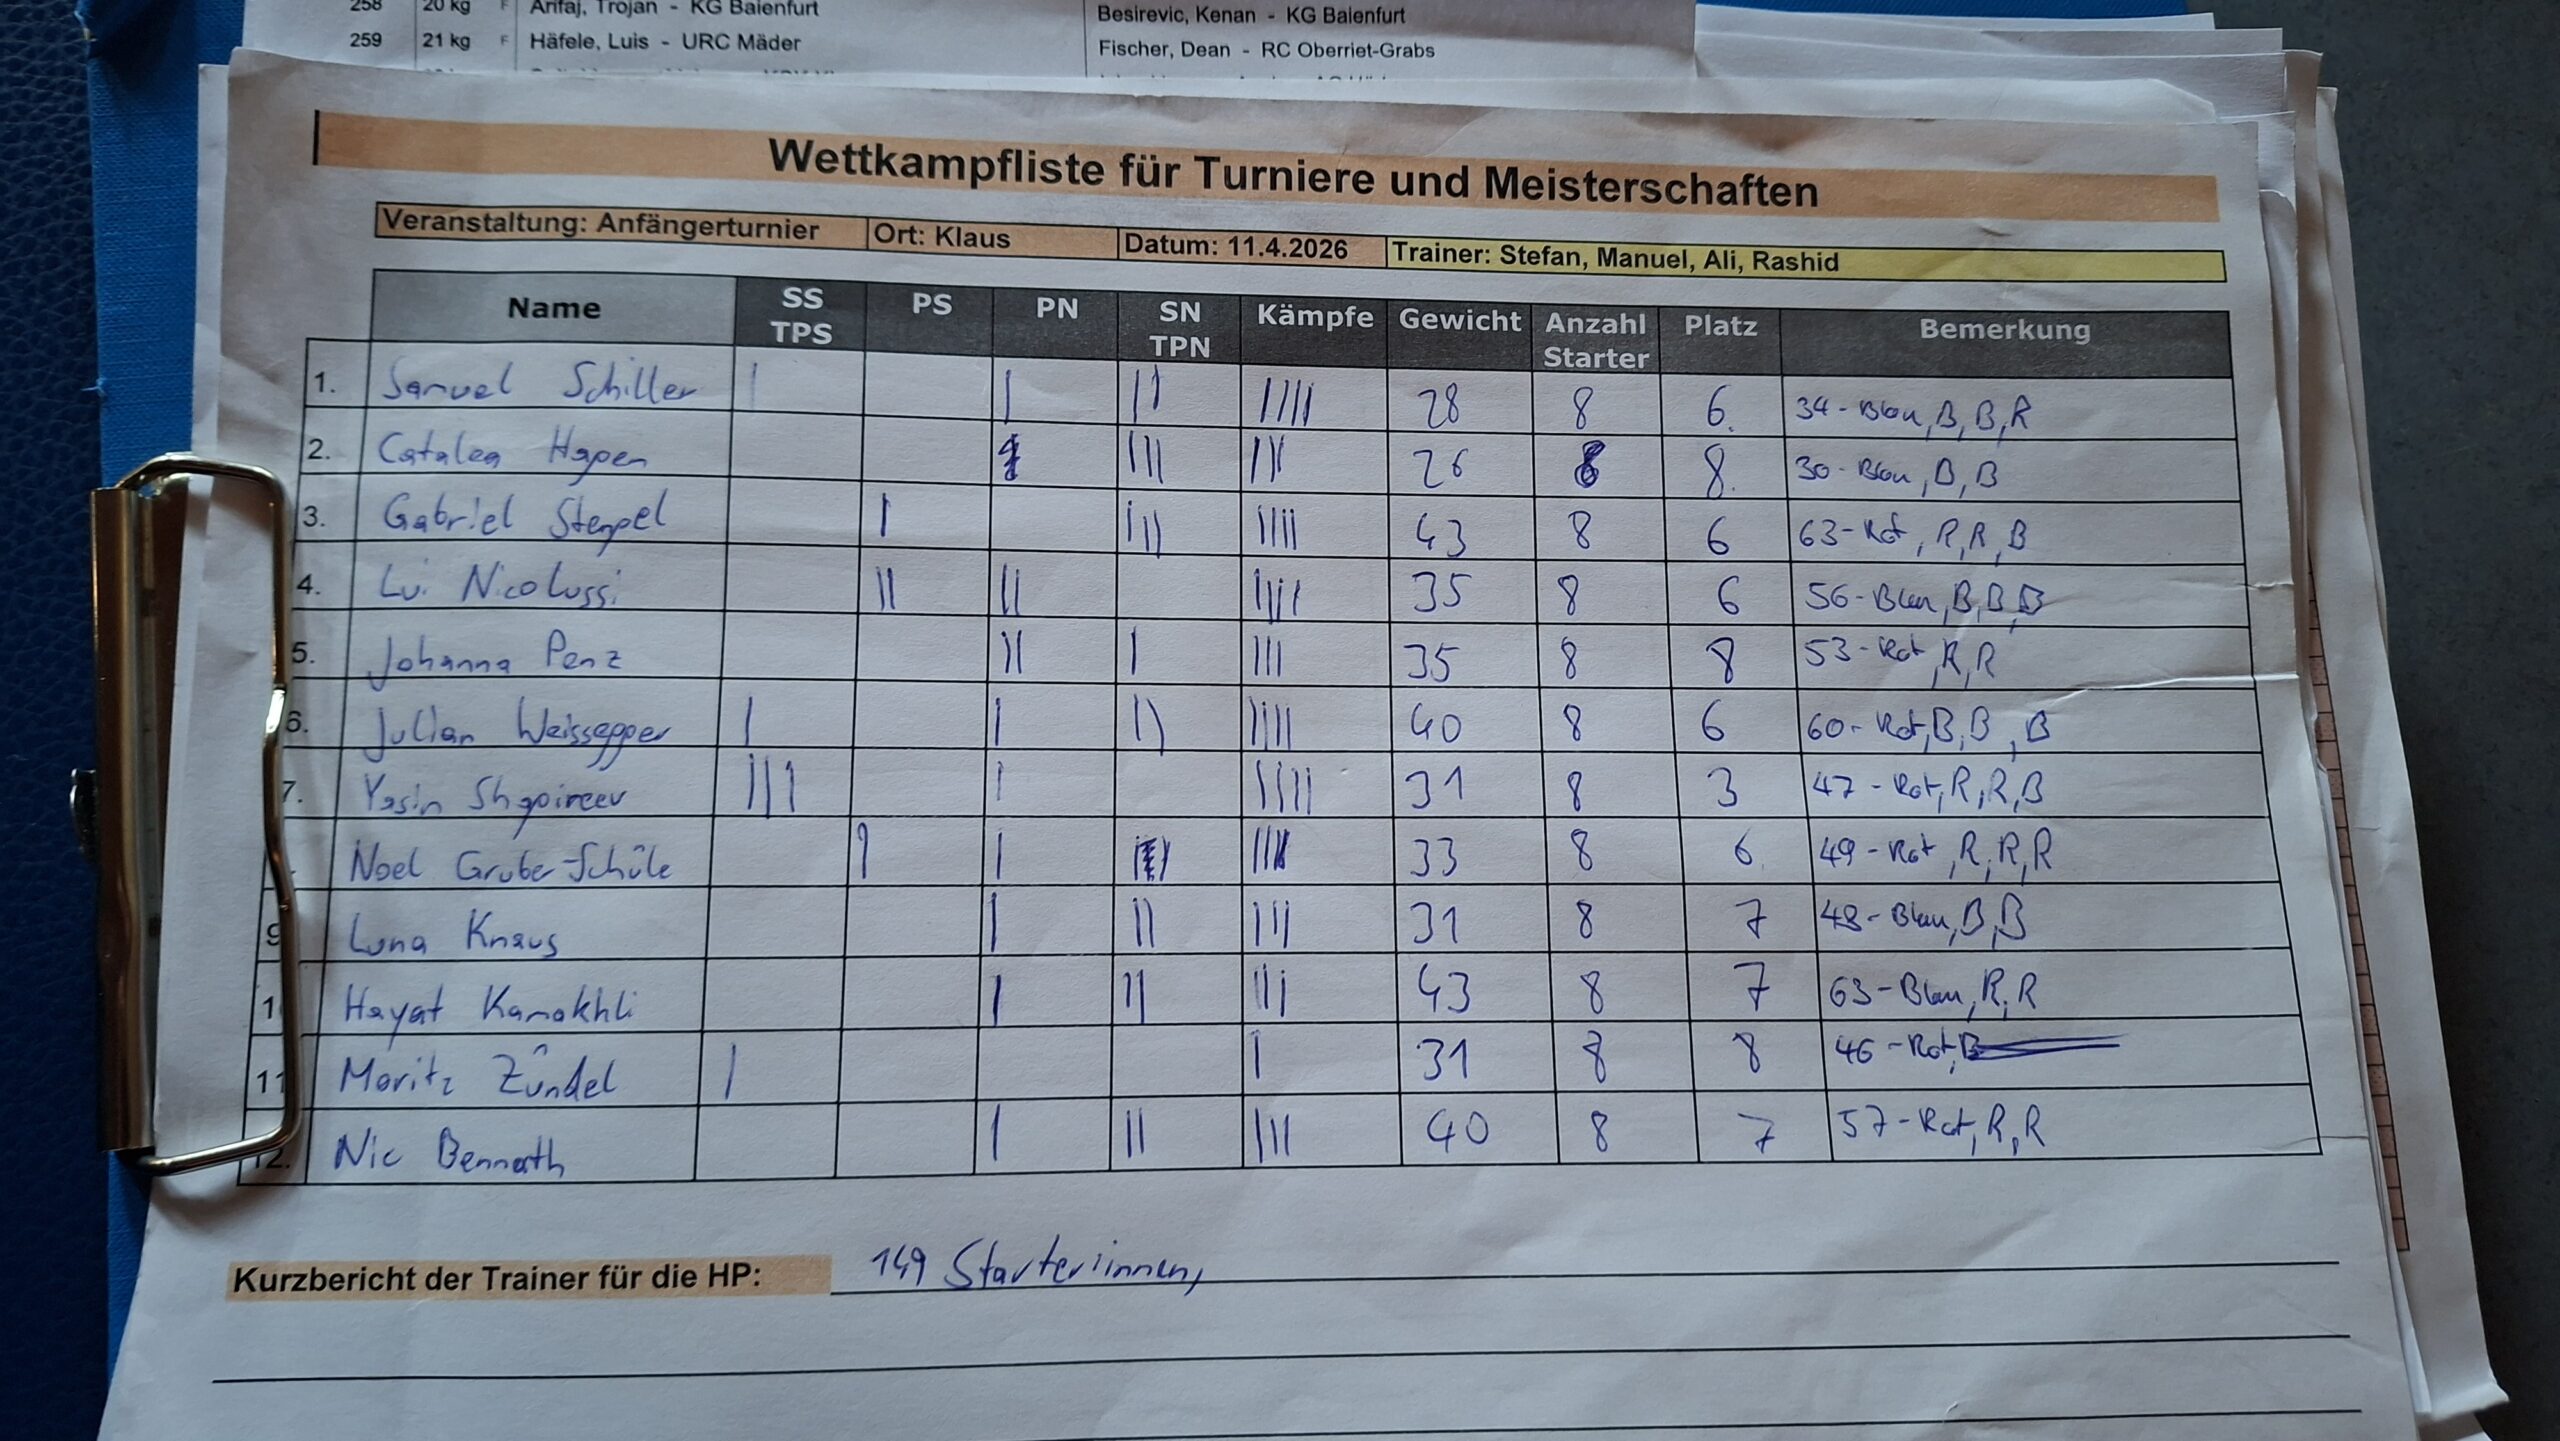 258 20 kg F Arifaj, Trojan - KG Baienfurt Besirevic, Kenan - KG Baienfurt
259 21 kg F Häfele, Luis - URC Mäder Fischer, Dean - RC Oberriet-Grabs
Wettkampfliste für Turniere und Meisterschaften
Veranstaltung: Anfängerturnier Ort: Klaus Datum: 11.4.2026 Trainer: Stefan, Manuel, Ali, Rashid
Name SS TPS PS PN SN TPN Kämpfe Gewicht Anzahl Starter Platz Bemerkung
1. Samuel Schiller | | || |||| 28 8 6. 34-Blau, B, B, R
2. Catalea Hagen ||| ||| 26 8 8. 30-Blau, B, B
3. Gabriel Stempel | ||| |||| 43 8 6 63-Rot, R, R, B
4. Lui Nicolussi || || |||| 35 8 6 56-Blau, B, B, B
5. Johanna Penz || | ||| 35 8 8 53-Rot, R, R
6. Julian Weissegger | | || |||| 40 8 6 60-Rot, B, B, B
7. Yasin ||| | |||| 31 8 3 47-Rot, R, R, B
Noel Gruber-Schüle | | |||| 33 8 6. 49-Rot, R, R, R
9 Luna Knaus | || ||| 31 8 7 48-Blau, B, B
10 Hayat Kamakhli | || ||| 43 8 7 63-Blau, R, R
11 Moritz Zündel | | 31 8 8 46-Rot,
12. Nic Bennath | || ||| 40 8 7 57-Rot, R, R
Kurzbericht der Trainer für die HP: 149 Starter:innen,